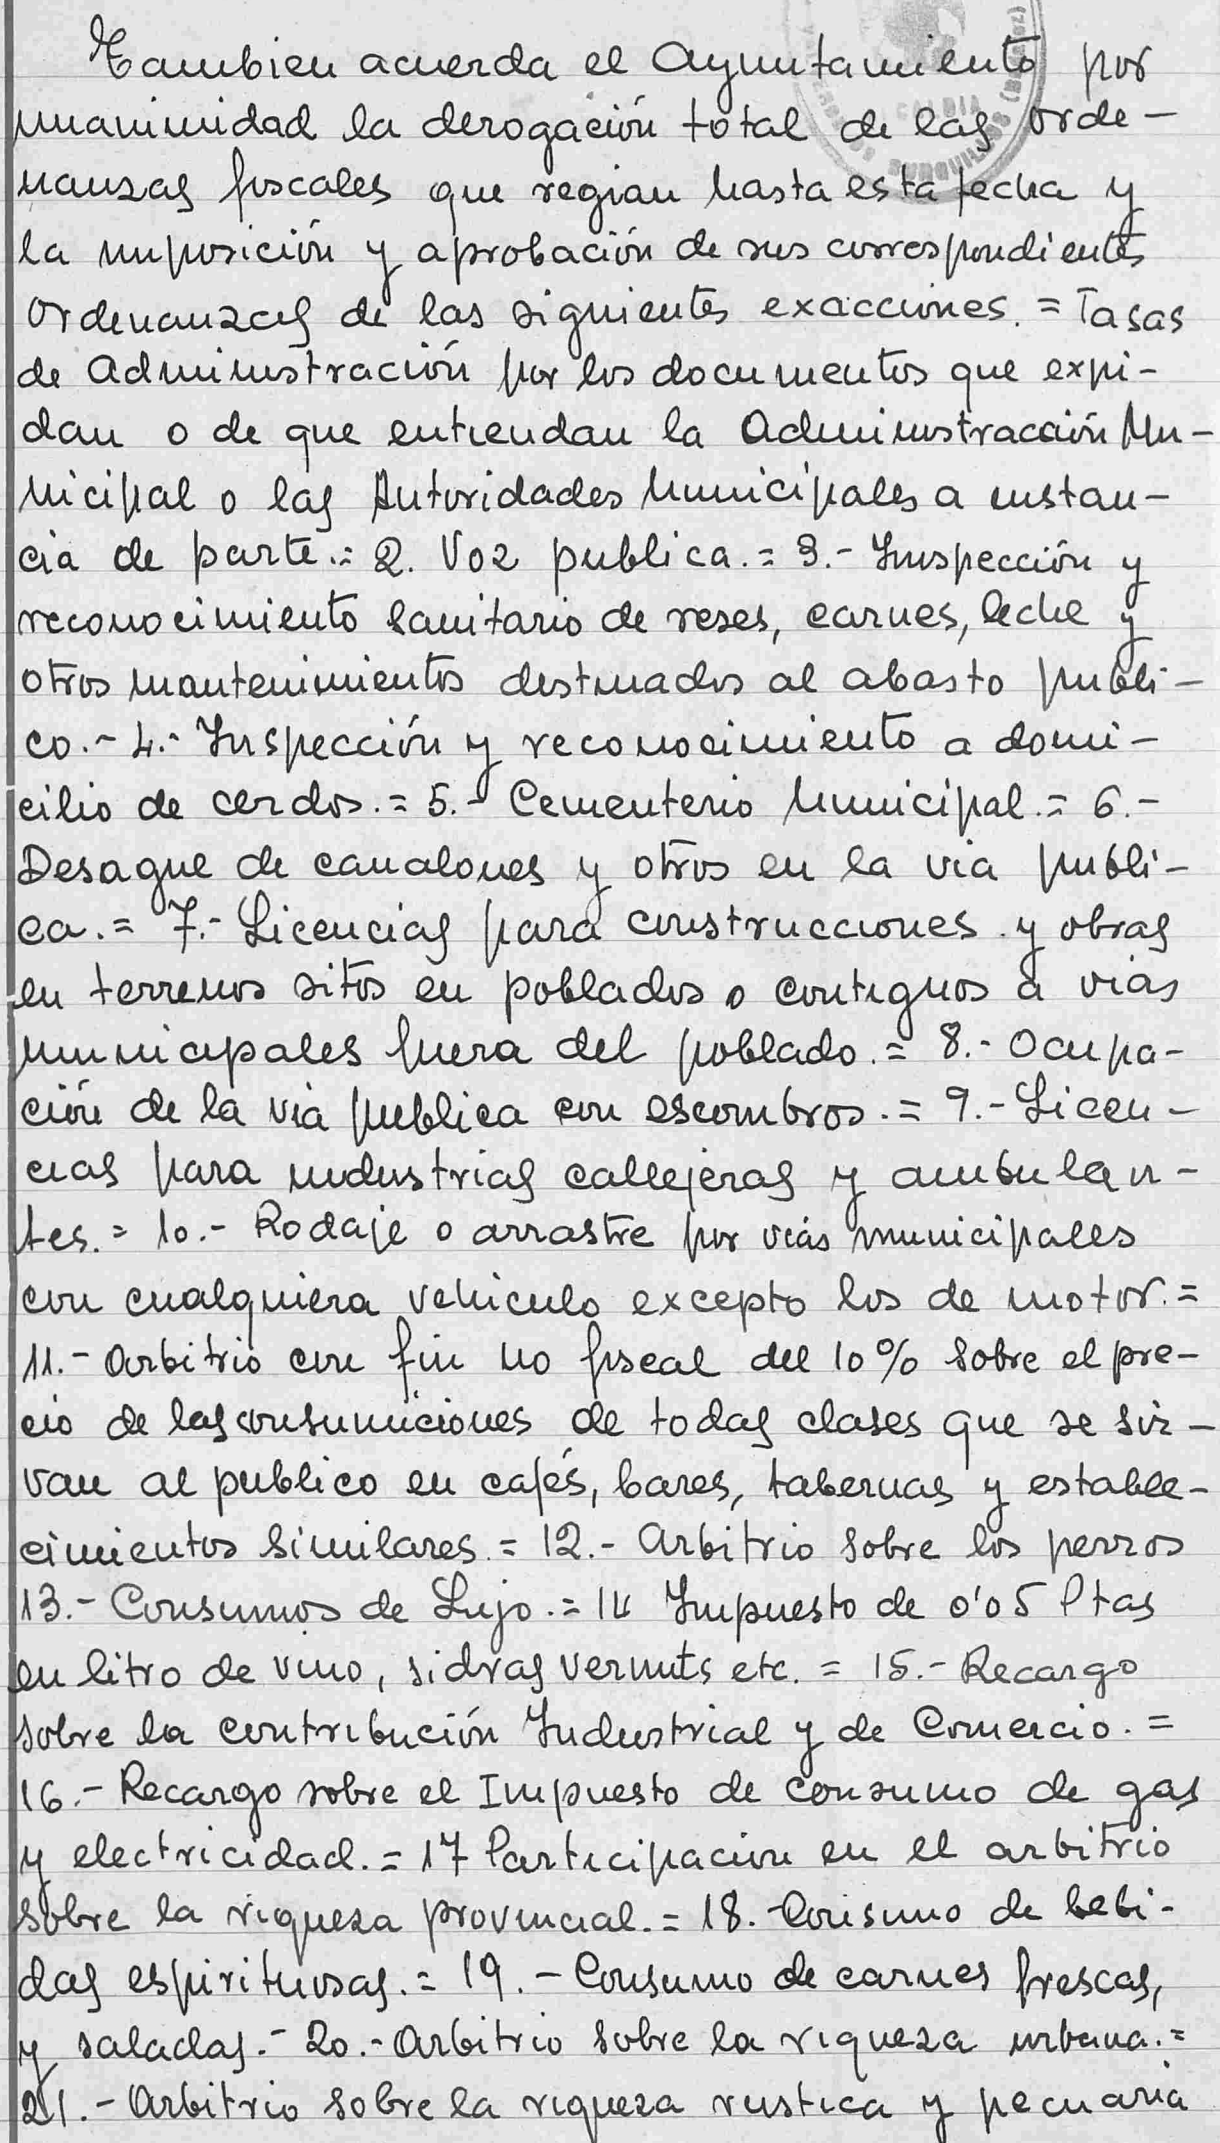 Tambien acuerda el Ayuntamiento por
unanimidad la derogación total de las orde-
nanzas fiscales que regian hasta esta fecha y
la imposición y aprobación de sus correspondientes
Ordenanzas de las siguientes exacciones. = Tasas
de Administración por los documentos que expi-
dan o de que entiendan la Administracción Mu-
nicipal o las Autoridades Municipales a instan-
cia de parte.= 2. Voz publica. = 3.- Inspección y
reconocimiento sanitario de reses, carnes, leche y
otros mantenimientos destinados al abasto publi-
co.- 4.- Inspección y reconocimiento a domi-
cilio de cerdos. = 5.- Cementerio Municipal.= 6.-
Desague de canalones y otros en la via publi-
ca. = 7.- Licencias para construcciones y obras
en terrenos sitos en poblados o contiguos a vias
municipales fuera del poblado. = 8.- Ocupa-
ción de la via publica con escombros. = 9.- Licen-
cias para industrias callejeras y ambulan-
tes. = 10.- Rodaje o arrastre por vias municipales
con cualquiera vehiculo excepto los de motor. =
11.- Arbitrio con fin no fiscal del 10% sobre el pre-
cio de las consumiciones de todas clases que se sir-
van al publico en cafés, bares, tabernas y estable-
cimientos similares. = 12.- Arbitrio sobre los perros
13.- Consumos de Lujo. = 14 Impuesto de 0'05 Ptas
en litro de vino, sidras vermuts etc. = 15.- Recargo
sobre la contribución Industrial y de Comercio. =
16.- Recargo sobre el Impuesto de consumo de gas
y electricidad. = 17 Participacion en el arbitrio
sobre la riqueza provincial. = 18.- Consumo de bebi-
das espirituosas. = 19. - Consumo de carnes frescas,
y saladas.- 20.- Arbitrio sobre la riqueza urbana. =
21.- Arbitrio sobre la riqueza rustica y pecuaria